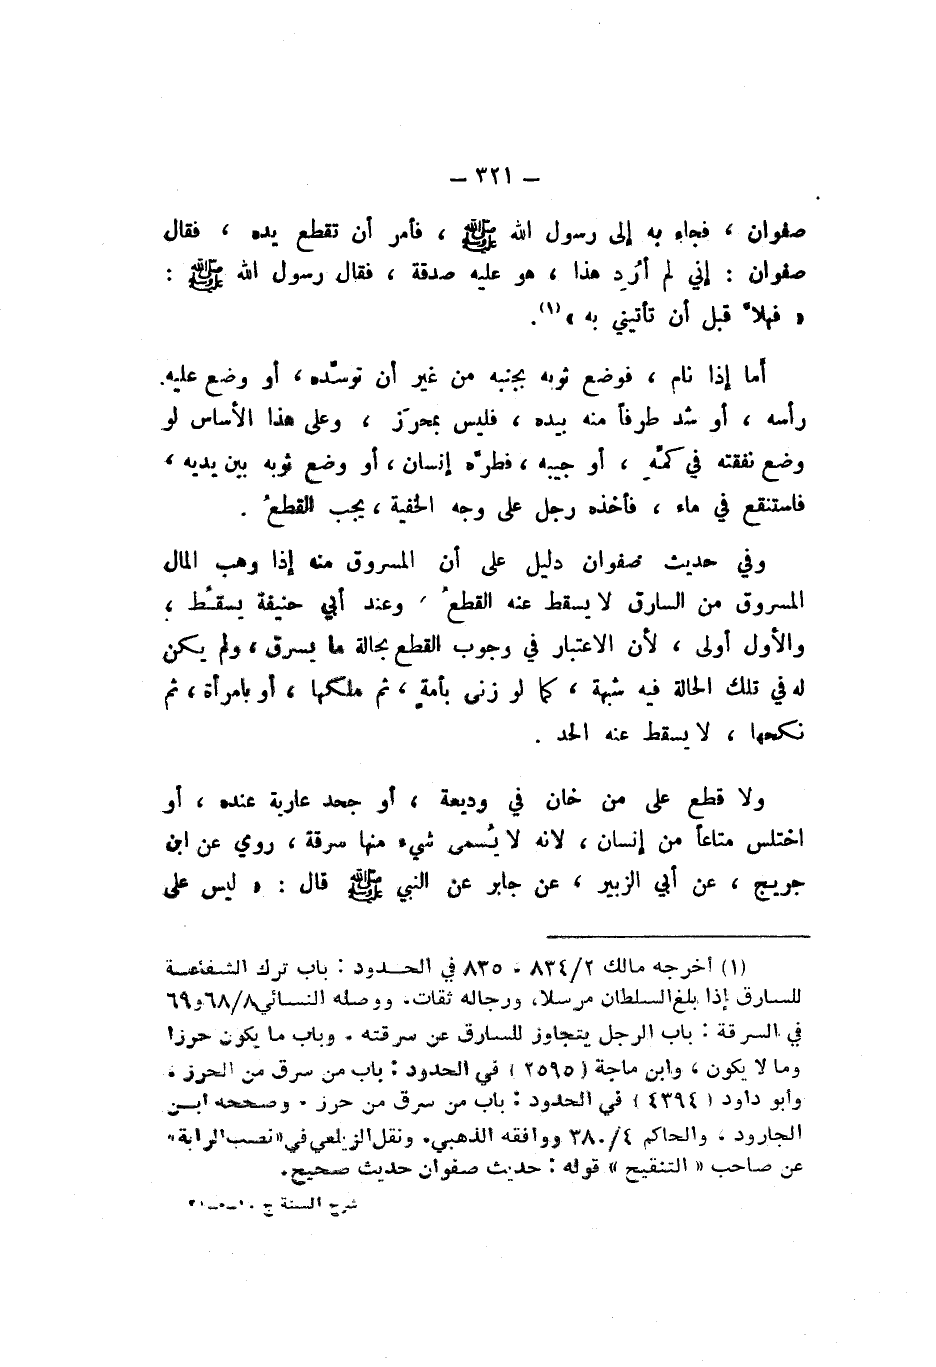 – ٣٢١ –
صفوان ، فجاء به إلى رسول الله ﷺ ، فأمر أن تقطع يده ، فقال
صفوان : إني لم أُرِد هذا ، هو عليه صدقة ، فقال رسول الله ﷺ :
« فهلاّ قبل أن تأتيني به »(١).
أما إذا نام ، فوضع ثوبه بجنبه من غير أن توسّده ، أو وضع عليه
رأسه ، أو شد طرفاً منه بيده ، فليس بمحرَز ، وعلى هذا الأساس لو
وضع نفقته في كمّهِ ، أو جيبه ، فطرّه إنسان ، أو وضع ثوبه بين يديه ،
فاستنقع في ماء ، فأخذه رجل على وجه الخفية ، يجب القطعُ .
وفي حديث صفوان دليل على أن المسروق منه إذا وهب المال
المسروق من السارق لا يسقط عنه القطعُ ، وعند أبي حنيفة يسقُط ،
والأول أولى ، لأن الاعتبار في وجوب القطع بحالة ما يسرق ، ولم يكن
له في تلك الحالة فيه شبهة ، كما لو زنى بأمةٍ ، ثم ملكها ، أو بامرأة ، ثم
نكحها ، لا يسقط عنه الحد .
ولا قطع على من خان في وديعة ، أو جحد عارية عنده ، أو
اختلس متاعاً من إنسان ، لانه لا يُسمى شيء منها سرقة ، روي عن ابن
جريج ، عن أبي الزبير ، عن جابر عن النبي ﷺ قال : « ليس على
(١) أخرجه مالك ٨٣٤/٢ ، ٨٣٥ في الحدود : باب ترك الشفاعة
للسارق إذا بلغ السلطان مرسلا، ورجاله ثقات. ووصله النسائي ٦٨/٨ و٦٩
في السرقة : باب الرجل يتجاوز للسارق عن سرقته . وباب ما يكون حرزا
وما لا يكون ، وابن ماجة ( ٢٥٩٥ ) في الحدود : باب من سرق من الحرز .
وأبو داود ( ٤٣٩٤ ) في الحدود : باب من سرق من حرز . وصححه ابن
الجارود ، والحاكم ٣٨٠/٤ ووافقه الذهبي. ونقل الزيلعي في «نصب الراية»
عن صاحب « التنقيح » قوله : حديث صفوان حديث صحيح.
شرح السنة ج ١٠ــ٥ــ٢١